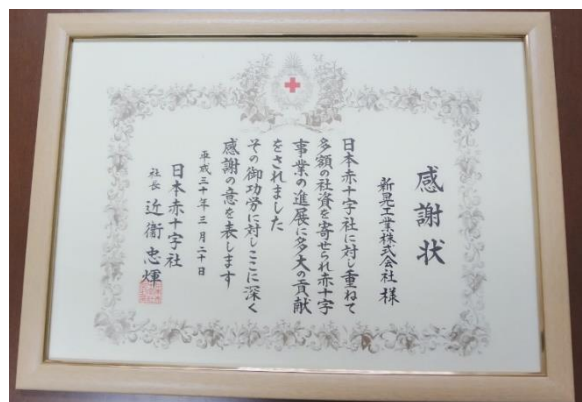 感謝状
新晃工業株式会社様
日本赤十字社に対し重ねて
多額の社資を寄せられ赤十字
事業の進展に多大の貢献
をされました
その御功労に対しここに深く
感謝の意を表します
平成三十年三月二十日
日本赤十字社
社長 近衞忠煇